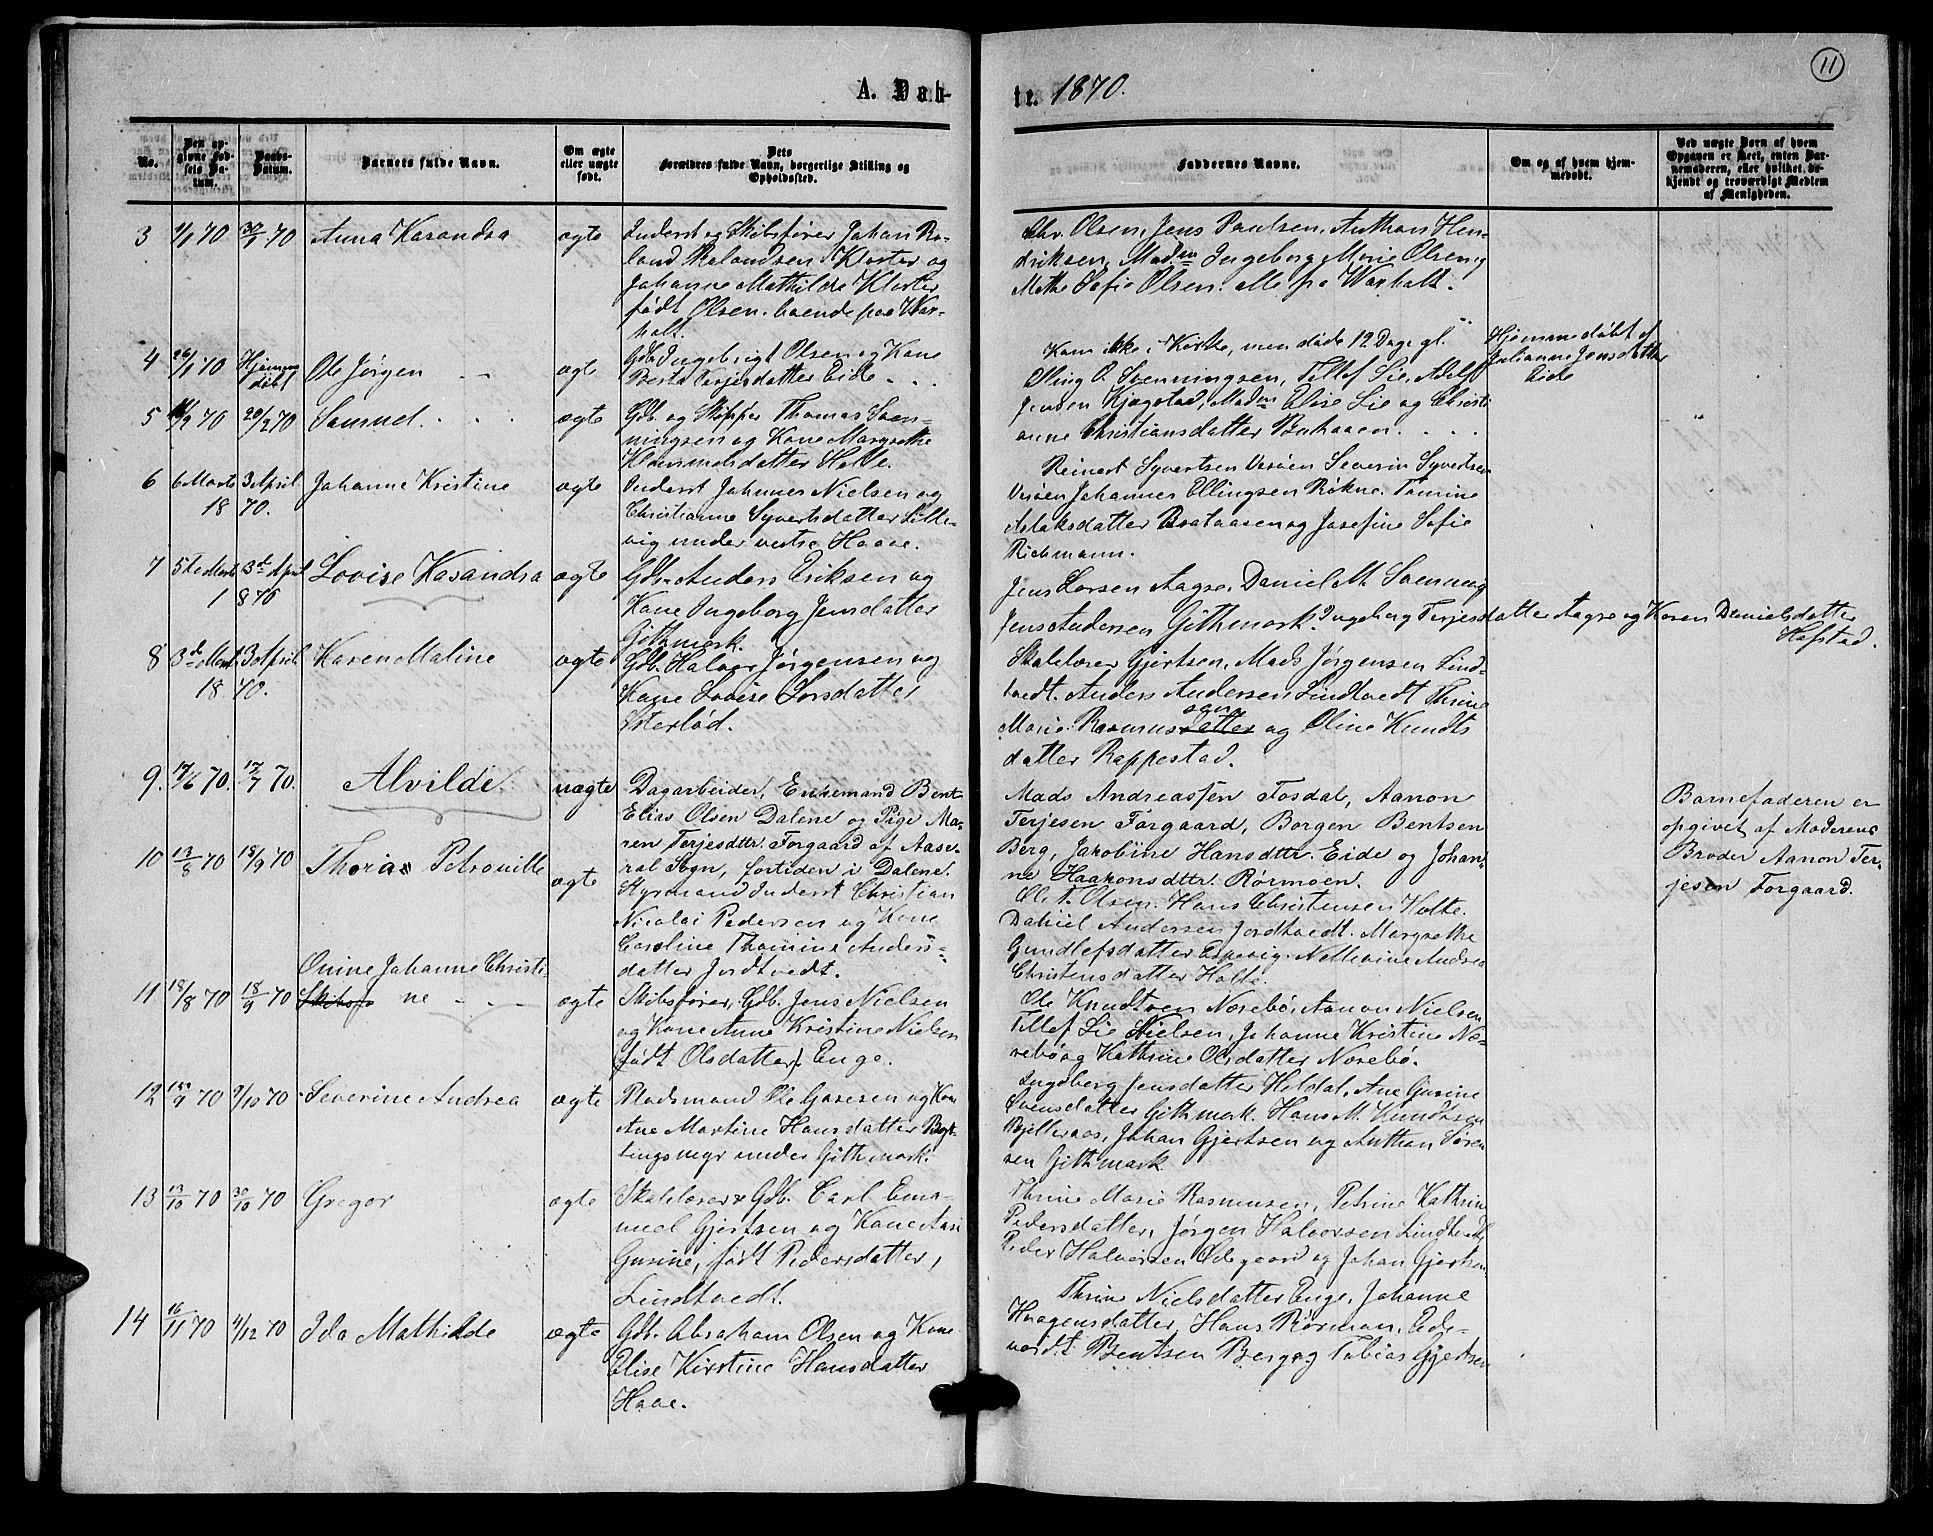 11
A. Døb-
te. 1870.
No.
Den op-
givne Fød-
sels Da-
tum.
Daabs-
Datum.
Barnets fulde Navn.
Om ægte
eller uægte
født.
Dets
Forældres fulde Navn, borgerlige Stilling og
Opholdssted.
Faddernes Navne.
Om og af hvem hjem-
medøbt.
Ved uægte Børn af hvem
Opgaven er skeet, enten Bar-
nemoderen, eller hvilket be-
kjendt og troværdigt Medlem
af Menigheden.
3 1/1 70 30/1 70 Anna Kasandra ægte
Inderst og Skibsfører Johan Ro-
land Roelandsen Kloster og
Johanne Mathilde Kloster
født Olsen. boende paa War-
holt.
Chr. Olsen, Jens Paulsen, Anthon Hen-
driksen, Madm Ingeborg Marie Olsen og
Mette Sofie Olsen. alle på Warholt.
4 26/1 70 Hjemme
døbt Ole Jørgen ægte
Gdb. Ingebrigt Olsen og Kone
Berte Terjesdatter Eide
Kom ikke i Kirke, men døde 12 Dage gl.
Hjemmedøbt af
Julianne Jensdatter
Eide
5 /2 70 20/2 70 Samuel ægte
Gdb. og Skipper Thomas Sven-
ningsen og Kone Margrethe
Klemmetsdatter Holte.
Elling O. Svenningsen, Tellef Lie, Adolf
Jensen Kjøgstad, Madm Elise Lie og Christi
anne Christiansdatter Buhaaen
6 6 Marts 3 April
18 70. Johanne Kristine ægte
Inderst Johannes Nielsen og
Christianne Syvertsdatter Lille-
vig under vestre Haave.
Reinert Syvertsen Vesøen Severin Syvertsen
Vesøen Johannes Ellingsen Røkne. Tomine
Aslaksdatter Brataasen og Josefine Sofie
Richmann.
7 5te Marts 3d April
1870 Lovise Kasandra ægte
Gdb. Anders Eriksen og
Kone Ingeborg Jensdatter
Githmark.
Jens Larsen Aagre, Daniel M. Svennevig
Jens Andersen Githmark. Ingeborg Terjesdatter Aagre og Karen Danielsdatter
Hofstad.
8 3d Marts 3 April
18 70. Karen Maline ægte
Gdb. Halvor Jørgensen og
Kone Lovise Larsdatter
Østerlød.
Skolelærer Gjertsen, Mads Jørgensen Lind-
tvedt. Anders Andersen Lindtvedt Thrine
Marie Rasmusdatter sen og Oline Knudts
datter Reppestad.
9. 17/6 70. 17/7 70. Alvilde uægte
Dagarbeider, Enkemand Bent
Elias Olsen Dalene og Pige Ma-
ren Terjesdttr. Forgaard af Aase-
ral Sogn, fortiden i Dalene.
Mads Andreassen Fosdal, Aanon
Terjesen Forgaard, Borgen Bentsen
Berg, Jakobine Hansdttr. Eide og Johan-
ne Haakonsdttr. Rørmoen.
Barnefaderen er
opgivet af Moderens
Broder Aanon Ter-
jesen Forgaard.
10 13/8 70 18/9 70 Thoria Petronille ægte
Styrmand Inderst Christian
Nicolai Pedersen og Kone
Caroline Thomine Anders-
datter Jordtvedt.
Ole T. Olsen. Hans Christensen Holte.
Daniel Andersen Jordtvedt. Margrethe
Gundlefsdatter Espevig. Nathanine Andrea
Christensdatter Holte.
11 18/8 70 18/9 70 Onine Johanne Christi-
Skibsfø ne ægte
Skibsfører, Gdb. Jens Nielsen
og Kone Anne Kristine Nielsen
(født Olsdatter) Enge.
Ole Knudtsen Norebø. Aanon Nielsen
Tellef Lie Nielsen, Johanne Kristine No-
rebø og Kathrine Olsdatter Norebø.
12 /9 70 9/10 70 Severine Andrea ægte
Pladsmand Ole Gjøresen og Kone
Ane Martine Hansdatter Bryt-
tingsmyr under Githmark.
Ingeborg Jensdatter Heldal, Ane Gusine
Svensdatter Githmark. Hans M. Knudtsen
Bjelleraas, Johan Gjertsen og Anthon Søren
sen Githmark
13 13/10 70 30/10 70 Gregor ægte
Skolelærer & Gdb. Carl Ema-
nuel Gjertsen og Kone Assi
Gusine, født Pedersdatter,
Lindtvedt.
Thrine Marie Rasmusen, Petrine Kathrine
Pedersdatter, Jørgen Halvorsen Lindtvedt,
Peder Halvorsen Ødegaard og Johan Gjertsen
14 16/11 70 4/12 70 Ida Mathilde ægte
Gdb. Abraham Olsen og Kone
Elise Kirstine Hansdatter
Haave.
Thrine Nielsdatter Enge, Johanne
Haagensdatter, Hans Rørmoen, Ede-
vardt Bentsen Berg og Tobias Gjertsen